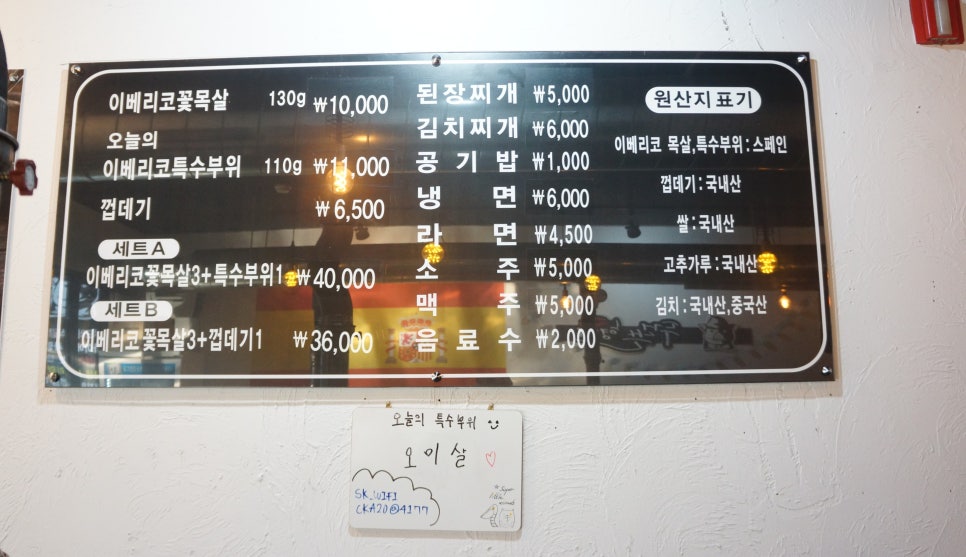 이베리코꽃목살 130g ₩10,000
오늘의
이베리코특수부위 110g ₩11,000
껍데기 ₩6,500
세트A
이베리코꽃목살3+특수부위1 ₩40,000
세트B
이베리코꽃목살3+껍데기1 ₩36,000
된장찌개 ₩5,000
김치찌개 ₩6,000
공기밥 ₩1,000
냉면 ₩6,000
라면 ₩4,500
소주 ₩5,000
맥주 ₩5,000
음료수 ₩2,000
원산지표기
이베리코 목살,특수부위:스페인
껍데기:국내산
쌀:국내산
고추가루:국내산
김치:국내산,중국산
오늘의 특수부위
오이살
SK_WIFI
CKA20@4177